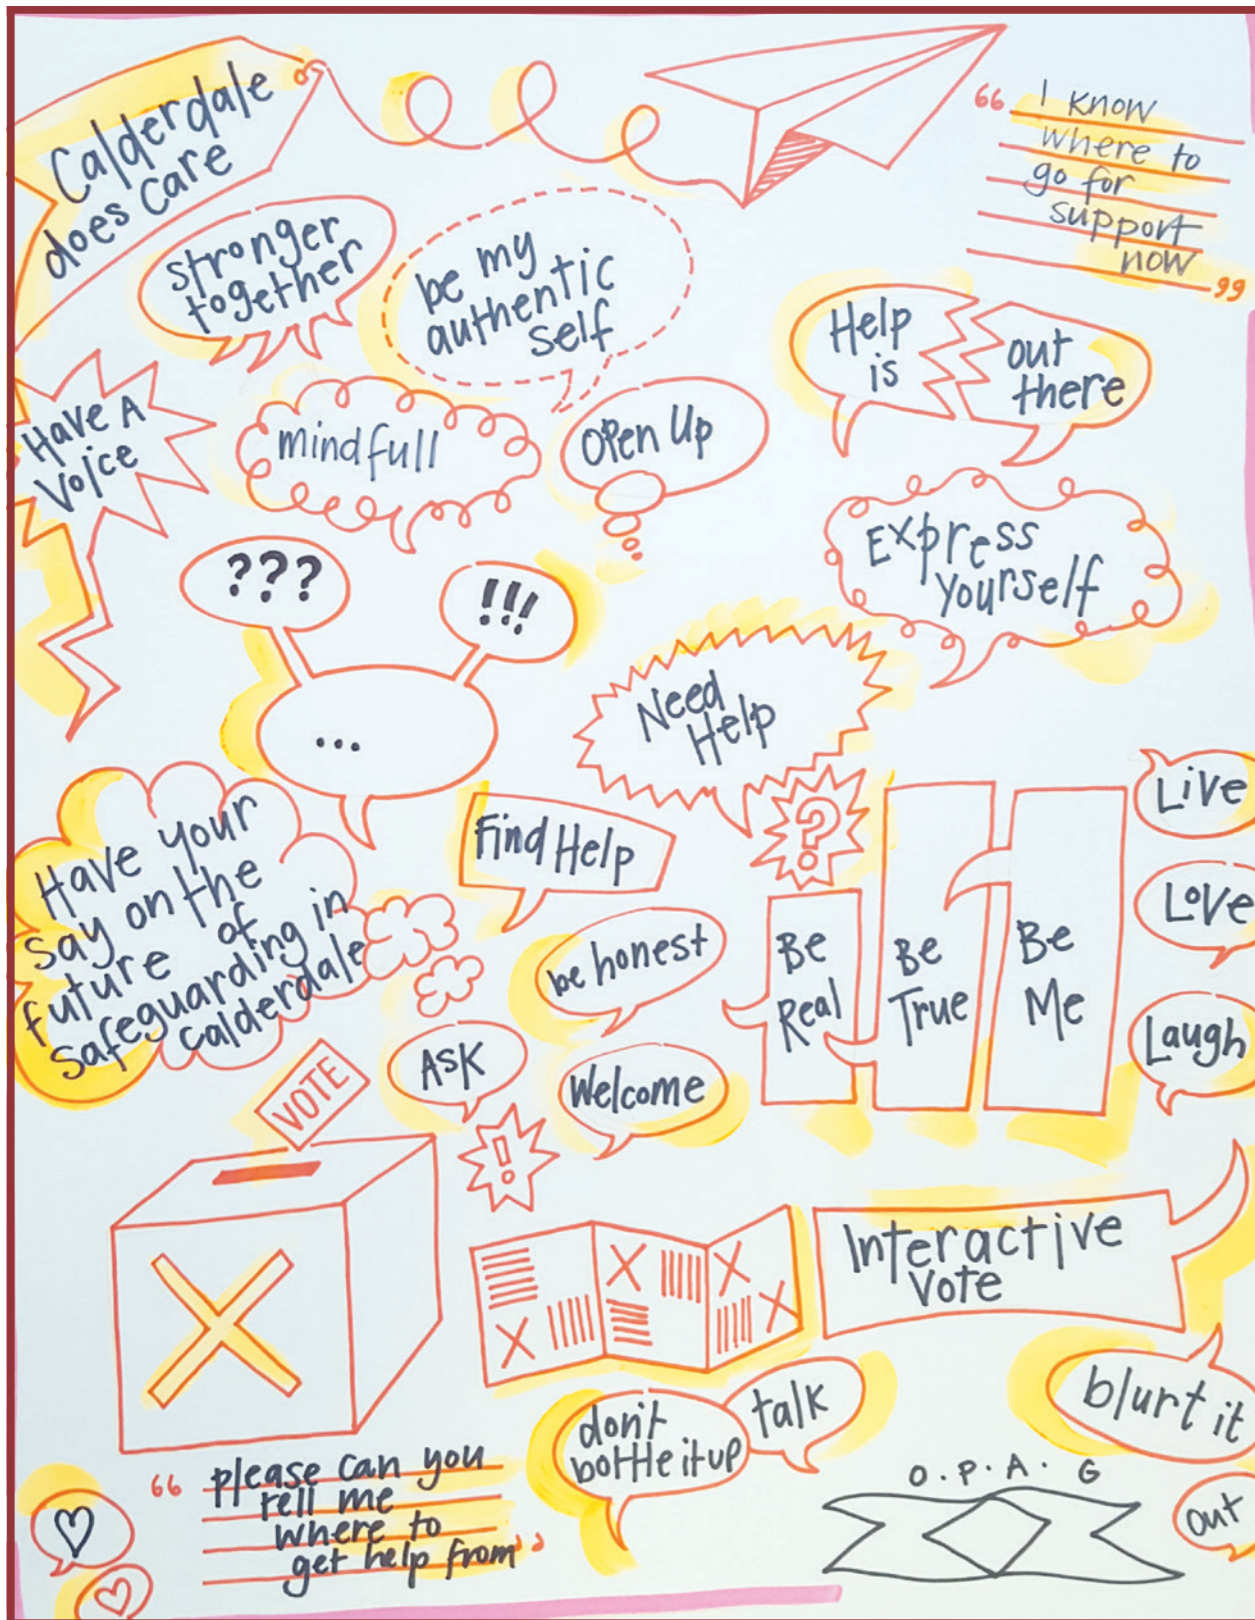 Calderdale
does care
"I know
where to
go for
support
now"
stronger
together
be my
authentic
self
Help
is
out
there
Have A
Voice
mindfull
open Up
Express
yourself
???
!!!
...
Need
Help
?
Have your
say on the
future of
safeguarding in
calderdale
Find Help
be honest
Be
Real
Be
True
Be
Me
Live
Love
Laugh
Ask
Welcome
!
VOTE
Interactive
Vote
don't
bottle it up
talk
blurt it
out
"please can you
tell me
where to
get help from"
O.P.A.G